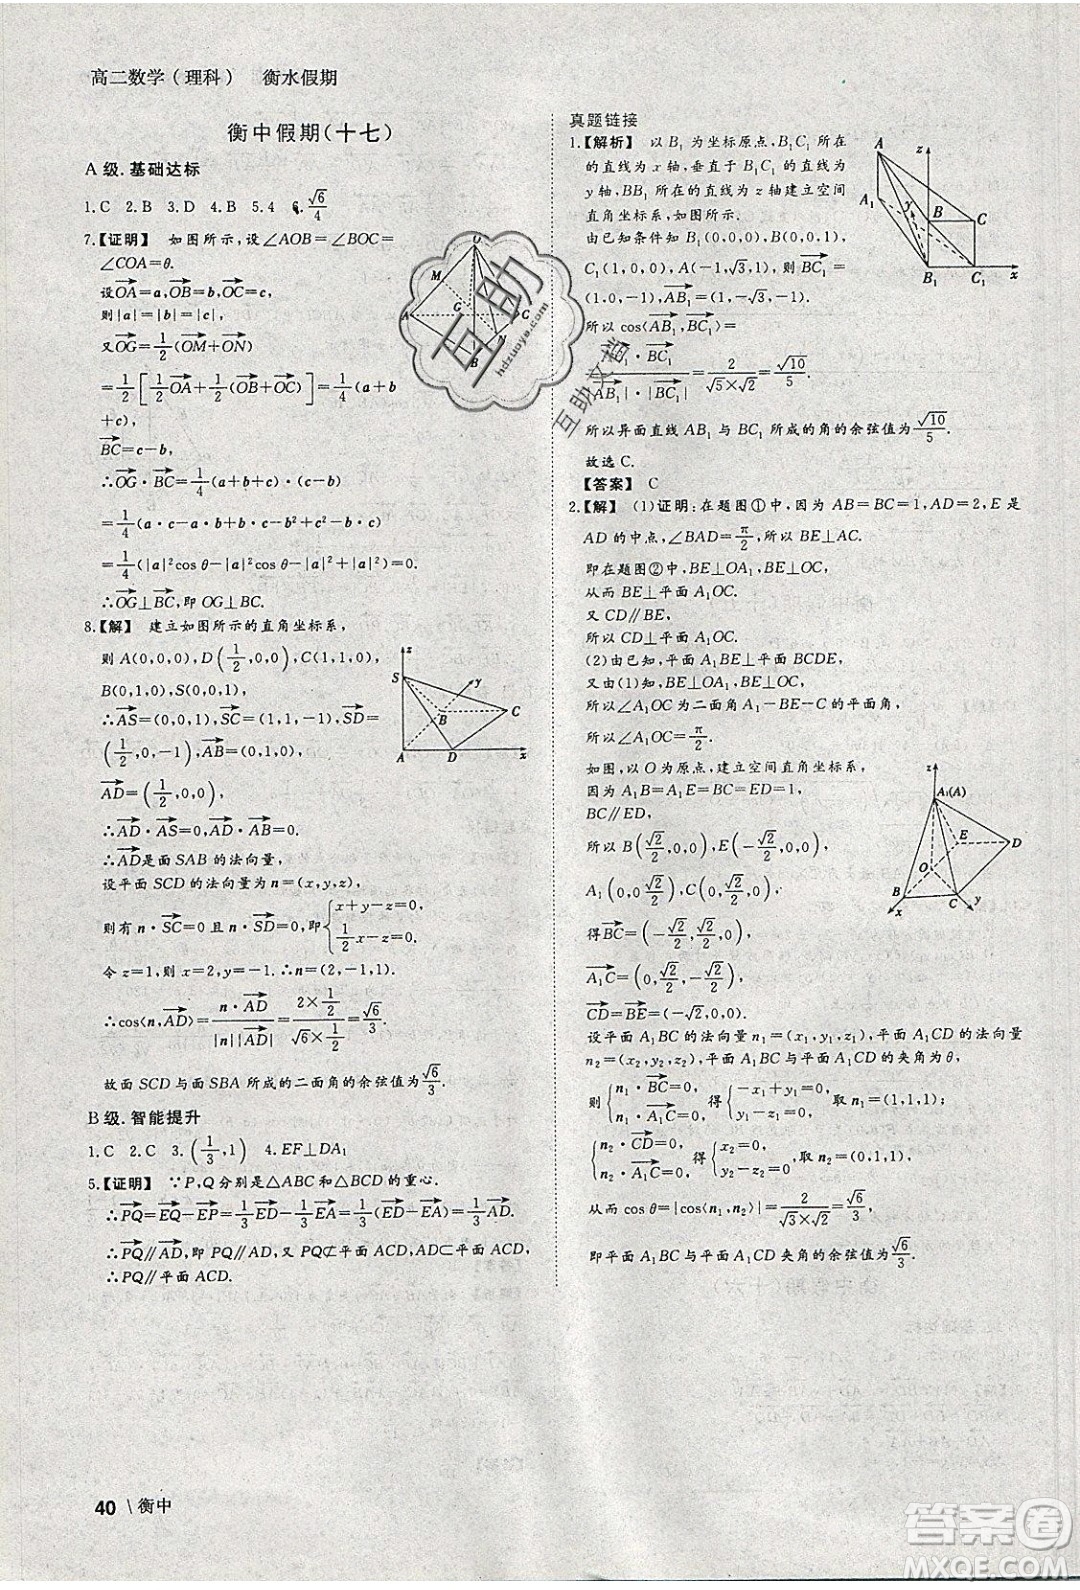 高二数学(理科) 衡水假期
衡中假期(十七)
A级.基础达标
1.C 2.B 3.D 4.B 5.4 6.√6/4
7.【证明】 如图所示,设∠AOB=∠BOC=
∠COA=θ.
设OA→=a,OB→=b,OC→=c,
则|a|=|b|=|c|,
又OG→=1/2(OM→+ON→)
=1/2[1/2OA→+1/2(OB→+OC→)]=1/4(a+b
+c),
BC→=c-b,
∴OG→·BC→=1/4(a+b+c)·(c-b)
=1/4(a·c-a·b+b·c-b²+c²-b·c)
=1/4(|a|²cosθ-|a|²cosθ-|a|²+|a|²)=0.
∴OG→⊥BC→,即OG⊥BC.
8.【解】 建立如图所示的直角坐标系,
则A(0,0,0),D(1/2,0,0),C(1,1,0),
B(0,1,0),S(0,0,1),
∴AS→=(0,0,1),SC→=(1,1,-1),SD→=
(1/2,0,-1),AB→=(0,1,0),
AD→=(1/2,0,0),
∴AD→·AS→=0,AD→·AB→=0.
∴AD→是面SAB的法向量,
设平面SCD的法向量为n=(x,y,z),
则有n·SC→=0且n·SD→=0,即{x+y-z=0, 1/2x-z=0.
令z=1,则x=2,y=-1.∴n=(2,-1,1).
∴cos⟨n,AD→⟩=n·AD→/|n||AD→|=2×1/2/√6×1/2=√6/3.
故面SCD与面SBA所成的二面角的余弦值为√6/3.
B级.智能提升
1.C 2.C 3.(1/3,1) 4.EF⊥DA₁
5.【证明】 ∵P,Q分别是△ABC和△BCD的重心.
∴PQ→=EQ→-EP→=1/3ED→-1/3EA→=1/3(ED→-EA→)=1/3AD→.
∴PQ→∥AD→,即PQ∥AD,又PQ⊄平面ACD,AD⊂平面ACD,
∴PQ∥平面ACD.
O
M
G
A
C
N
B
z
S
y
B
C
A
D
x
真题链接
1.【解析】 以B₁为坐标原点,B₁C₁所在
的直线为x轴,垂直于B₁C₁的直线为
y轴,BB₁所在的直线为z轴建立空间
直角坐标系,如图所示.
由已知条件知B₁(0,0,0),B(0,0,1),
C₁(1,0,0),A(-1,√3,1),则BC₁→=
(1,0,-1),AB₁→=(1,-√3,-1).
所以cos⟨AB₁→,BC₁→⟩=
AB₁→·BC₁→/|AB₁→|·|BC₁→|=2/√5×√2=√10/5.
所以异面直线AB₁与BC₁所成的角的余弦值为√10/5.
故选C.
【答案】 C
2.【解】 (1)证明:在题图①中,因为AB=BC=1,AD=2,E是
AD的中点,∠BAD=π/2,所以BE⊥AC.
即在题图②中,BE⊥OA₁,BE⊥OC,
从而BE⊥平面A₁OC.
又CD∥BE,
所以CD⊥平面A₁OC.
(2)由已知,平面A₁BE⊥平面BCDE,
又由(1)知,BE⊥OA₁,BE⊥OC,
所以∠A₁OC为二面角A₁-BE-C的平面角,
所以∠A₁OC=π/2.
如图,以O为原点,建立空间直角坐标系,
因为A₁B=A₁E=BC=ED=1,
BC∥ED,
所以B(√2/2,0,0),E(-√2/2,0,0),
A₁(0,0,√2/2),C(0,√2/2,0),
得BC→=(-√2/2,√2/2,0),
A₁C→=(0,√2/2,-√2/2),
CD→=BE→=(-√2,0,0).
设平面A₁BC的法向量n₁=(x₁,y₁,z₁),平面A₁CD的法向量
n₂=(x₂,y₂,z₂),平面A₁BC与平面A₁CD的夹角为θ,
则{n₁·BC→=0, n₁·A₁C→=0, 得{-x₁+y₁=0, y₁-z₁=0, 取n₁=(1,1,1);
{n₂·CD→=0, n₂·A₁C→=0, 得{x₂=0, y₂-z₂=0, 取n₂=(0,1,1),
从而cosθ=|cos⟨n₁,n₂⟩|=2/√3×√2=√6/3,
即平面A₁BC与平面A₁CD夹角的余弦值为√6/3.
A
z
A₁
y
B
C
B₁
C₁
x
z
A₁(A)
E
D
O
B
C
x
y
互助
hdzuoye.com
互助文档
40 \ 衡中
答案圈
MXQE.COM